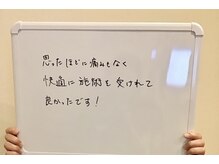 思ったほどに痛みもなく
快適に施術を受けれて
良かったです!